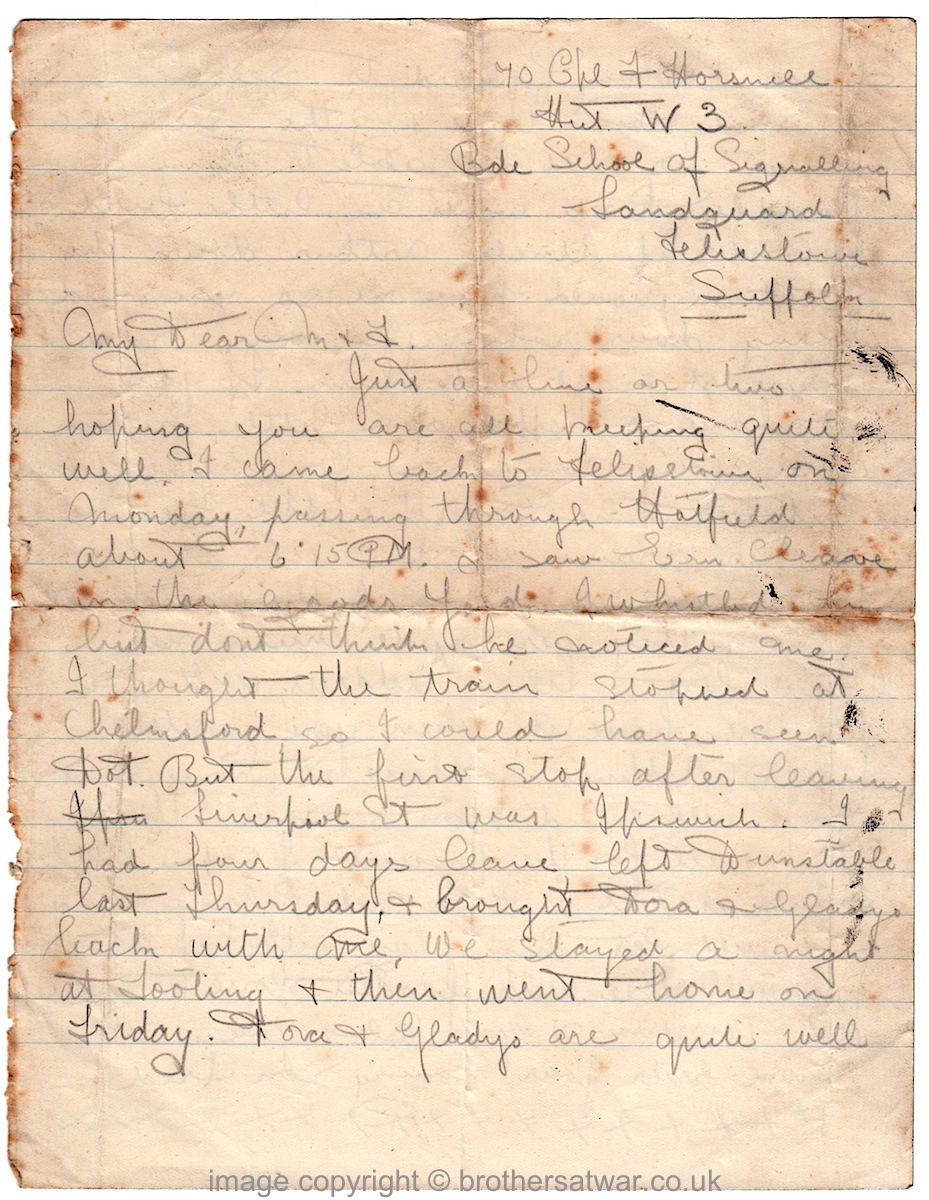 70 Cpl F Horsnell
Hut W 3
Bde School of Signalling
Landguard
Felixstowe
Suffolk
My Dear M & F.
Just a line or two
hoping you are all keeping quite
well. I came back to Felixstowe on
Monday, passing through Hatfield
about 6.15 PM. & saw Ern Cleave
in the Goods Yard. I whistled him
but dont think he noticed me.
I thought the train stopped at
Chelmsford, so I could have seen
Dot. But the first stop after leaving
Liverpool St was Ipswich. I
had four days leave left Dunstable
last Thursday, & brought Dora & Gladys
back with me, We stayed a night
at Tooting & then went home on
Friday. Dora & Gladys are quite well
image copyright © brothersatwar.co.uk